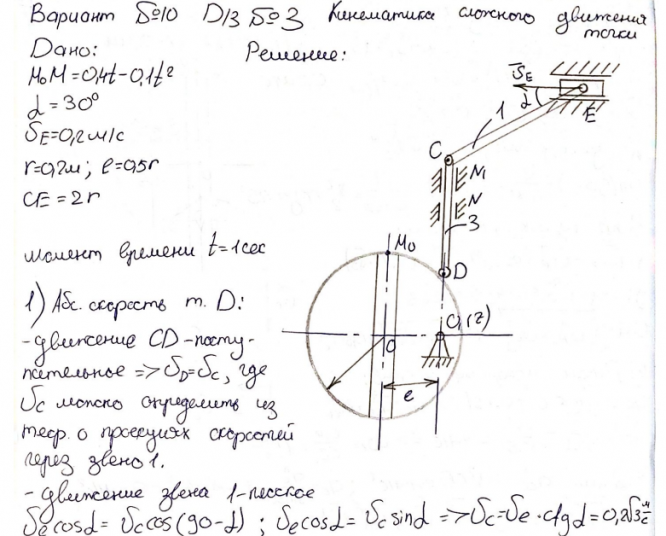 Вариант №10 D/З №3 Кинематика сложного движения
точки
Дано: Решение:
M₀M = 0,4t - 0,1t²
α = 30°
υE = 0,2 м/с
r = 0,2м; e = 0,5r
CE = 2r
момент времени t = 1 сек
1) Абс. скорость т. D:
- движение CD - посту-
пательное => υD = υC, где
υC можно определить из
теор. о проекциях скоростей
через звено 1.
- движение звена 1 - плоское
υe cosα = υc cos(90-α) ; υe cosα = υc sinα => υc = υe · ctgα = 0,2√3 м/с
ῡE
α
E
1
C
N₁
N
3
M₀
D
O
O₁(2)
e